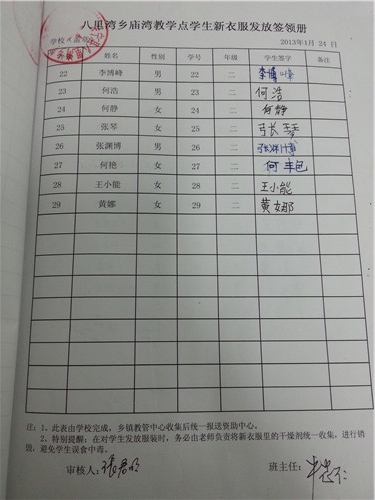 八里湾乡庙湾教学点学生新衣服发放签领册
学校
2013年1月 24 日
姓名 性别 学号 年级 学生签字 备注
22 李博峰 男 22 二 李博峰
23 何浩 男 23 二 何浩
24 何静 女 24 二 何静
25 张琴 女 25 二 张琴
26 张渊博 男 26 二 张渊博
27 何艳 女 27 二 何艳
28 王小能 女 28 二 王小能
29 黄娜 女 29 二 黄娜
注：1、此表由学校完成，乡镇教管中心收集后统一报送资助中心。
2、特别提醒：在对学生发放服装时，务必由老师负责将新衣服里的干燥剂统一收集，进行销
毁。避免学生误食中毒。
审核人： 班主任：